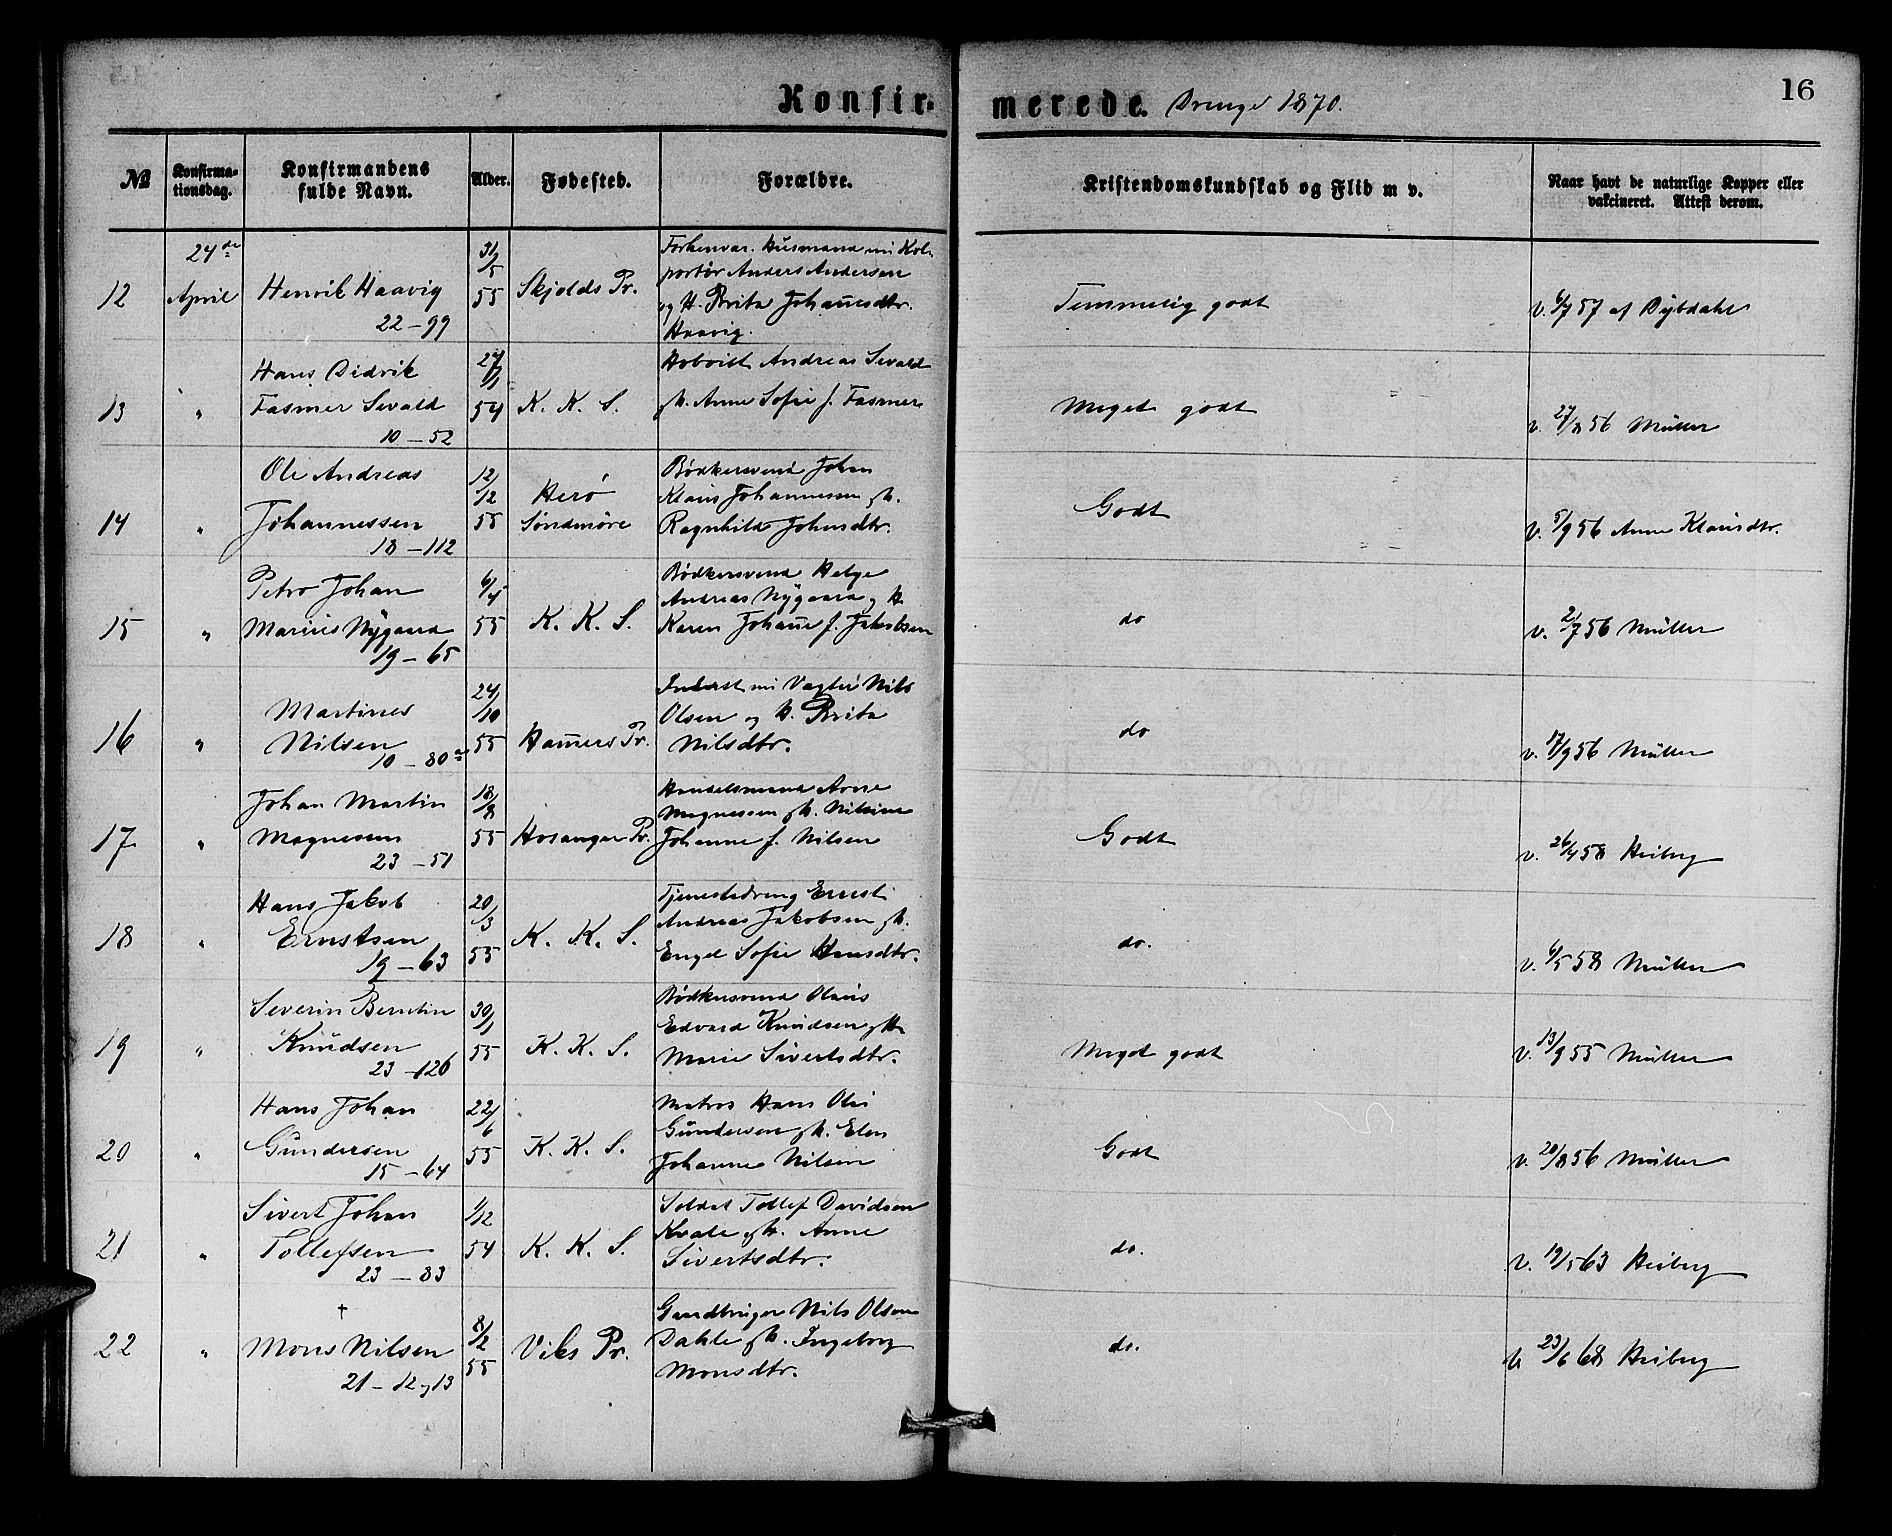 16
Konfir- merede. Drenge 1870.
No
Konfirma-
tionsdag.
Konfirmandens
fulde Navn.
Alder.
Fødested.
Forældre.
Kristendomskundskab og Flid m v.
Naar havt de naturlige Kopper eller
vakcineret. Attest derom.
12
24de
April
Henrik Haavig
22-99
31/5
55
Skjolds Pr.
Forhenvar. Husmand nu Kol-
portør Anders Andersen
og H. Brita Johannesdtr.
Haavig.
Temmelig godt
v. 6/7 57 af Dybdahl
13
"
Hans Didrik
Fasmer Sevald
10-52
27/1
54
K. K. S.
Andreas Sevald
H. Anne Sofie f. Fasmer
Meget godt
v. 27/8 56 Müller
14
"
Ole Andreas
Johannessen
18-112
12/12
55
Herø
Søndmøre
Bødkersvend Johan
Klaus Johannessen og H.
Ragnhild Johnsdtr.
Godt
v. 5/9 56 Anne Klausdtr.
15
"
Petro Johan
Marius Nygaard
19-65
6/4
55
K. K. S.
Bødkersvend Helge
Andreas Nygaard og H
Karen Johanne f. Jakobsen
do
v. 2/7 56 Müller
16
"
Martinus
Nilsen
10-80a
24/10
55
Hamers Pr.
Inderst nu Vægter Nils
Olsen og H. Brita
Nilsdtr.
do
v. 17/9 56 Müller
17
"
Johan Martin
Magnesen
23-51
18/8
55
Hosanger Pr.
Handelsmand Arne
Magnessen og H. Nilsine
Johanne f. Nilsen
Godt
v. 26/4 58 Heiberg
18
"
Hans Jakob
Ernstsen
19-63
20/3
55
K. K. S.
Tjenestedreng Ernst
Andreas Jakobsen og H.
Engel Sofie Hansdtr.
do.
v. 6/5 58 Müller
19
"
Severin Berntin
Knudsen
23-126
30/1
55
K. K. S.
Bødkersvend Olaus
Edvard Knudsen og H
Marie Sivertsdtr.
Meget godt
v. 13/9 55 Müller
20
"
Hans Johan
Gundersen
15-64
22/6
55
K. K. S.
Matros Hans Olai
Gundersen og H. Elen
Johanne Nilsen
Godt
v. 20/8 56 Müller
21
"
Sivert Johan
Tollefsen
23-83
1/12
54
K. K. S.
Soldat Tollef Davidsen
Kvale og H. Anne
Sivertsdtr.
do.
v. 19/5 63 Heiberg
22
"
†
Mons Nilsen
21-12 og 13
8/2
55
Viks Pr.
Gaardbruger Nils Olsen
Dahle og H. Ingeborg
Monsdtr.
do.
v 23/6 68 Heiberg